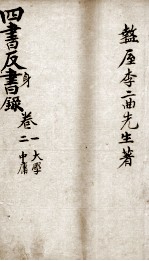 盩厔李二曲先生著
四書反身錄
卷
一 大學
二 中庸